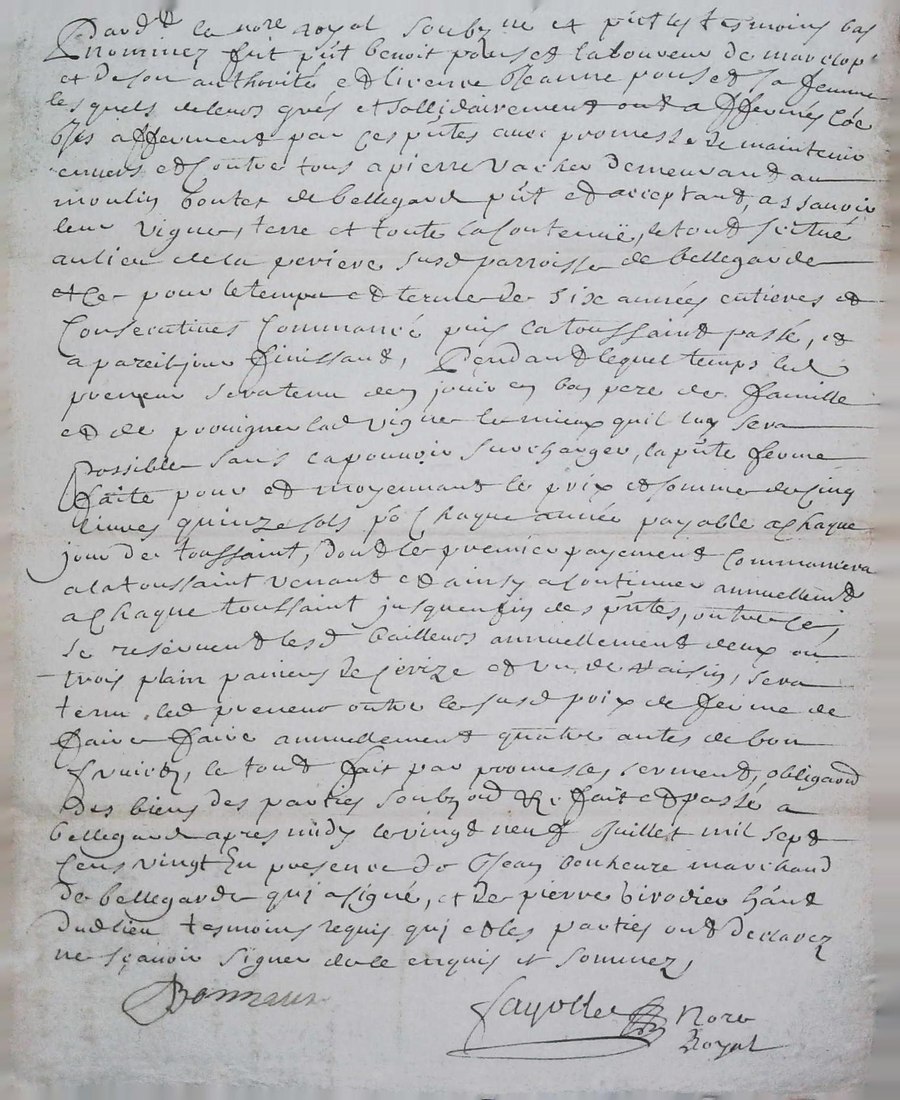 Pardt le nore royal soubzne et pnt les tesmoins bas
nommez fut pnt benoit pouset laboureur de marclop
et de son authorité et licence Jeanne pouset sa femme
lesquels de leurs grés et sollidairement ont affermés coe
ils afferment par ces pntes avec promesse de maintenir
envers et contre tous a pierre vacher demeurant au
moulin de bellegarde pnt et acceptant, assavoir
leur vigne, terre et toute la contenuë, le tout scitué
au lieu de la periere susd parroisse de bellegarde
et ce pour le temps et terme de six années entieres et
Consecutives Commancé puis la toussaint passé, et
a pareil jour finissant, Pendant lequel temps led
preneur sera tenu den jouir en bon pere de famille
et de provigner lad vigne le mieux quil luy sera
Possible sans la pouvoir surcharger, la pnte ferme
faite pour et moyennant le prix et somme de Cinq
livres quinze sols po Chaque année payable a Chaque
jour de toussaint, dont le premier payement Commancera
a la toussaint venant et ainsy a Continuer annuellemt
a Chaque toussaint jusquen fin des pntes, outre ce,
se reservent lesd bailleurs annuellement deux ou
trois plain paniers de cerize et un de raisin, sera
tenu led preneur outre le susd prix de ferme de
faire faire annuellement quatre antes de bon
fruict, le tout fait par promesses serment, obligaon
des biens des parties soubzon &c. fait et passé a
bellegarde apres midy le vingt neuf Juillet mil sept
Cens vingt En presence de Jean bonheure marchand
de bellegarde qui a signé, et de pierre birodier hant
dud lieu tesmoins requis qui et les parties ont declarez
ne sçavoir signer de ce enquis et sommez,
Bonneure
fayolle Nore
Royal